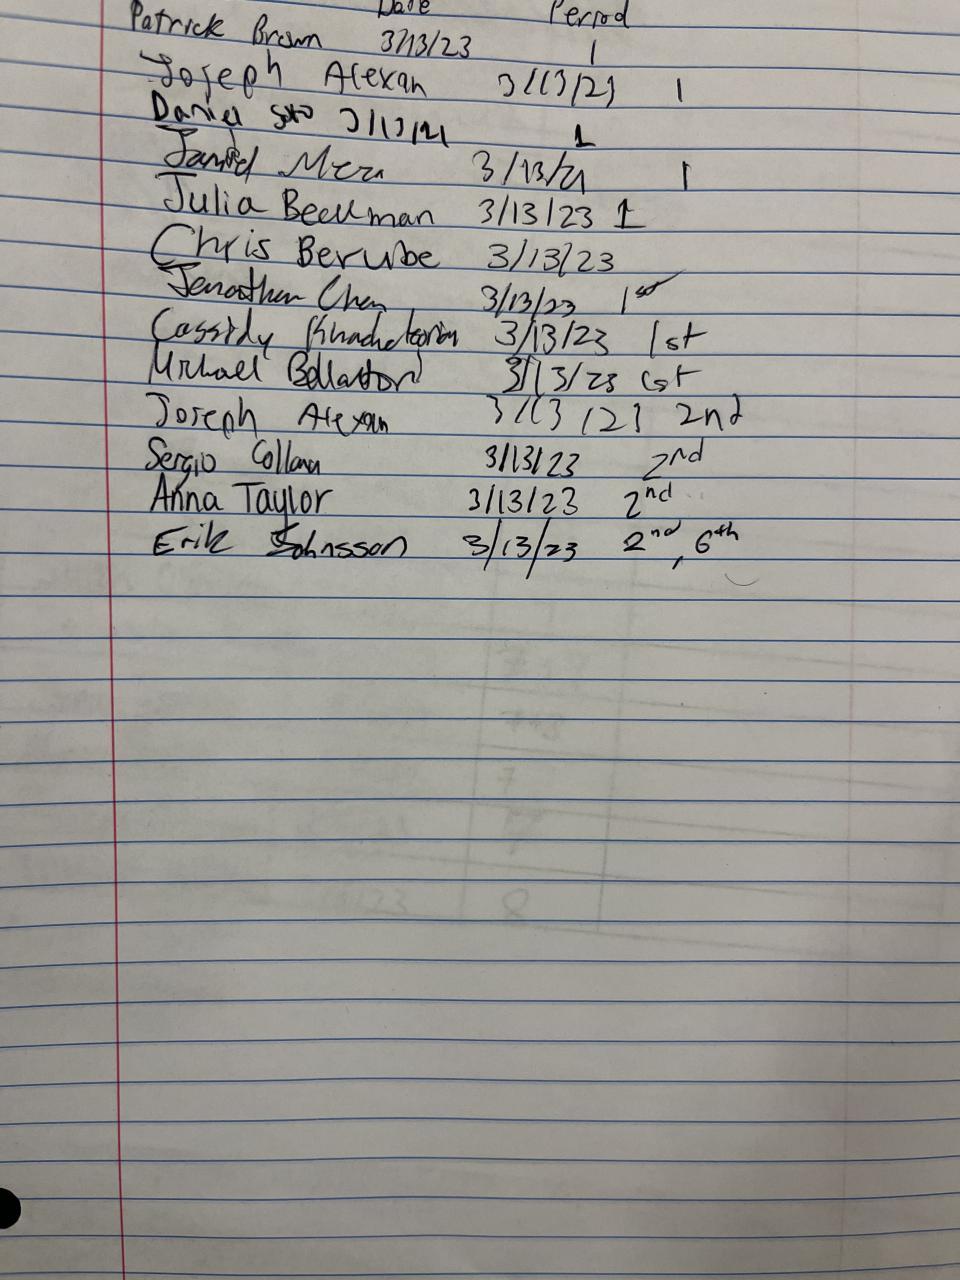 Date Period
Patrick Brown 3/13/23 1
Joseph Alexan 3/13/23 1
Daniel Soto 1
3/13/21 1
Julia Beckman 3/13/23 1
Chris Berube 3/13/23
Chen 3/13/23 1st
Cassidy 3/13/23 1st
Michael 3/13/23 1st
Joseph Alexan 3/13/23 2nd
Sergio 3/13/23 2nd
Anna Taylor 3/13/23 2nd
Erik Johnsson 3/13/23 2nd, 6th